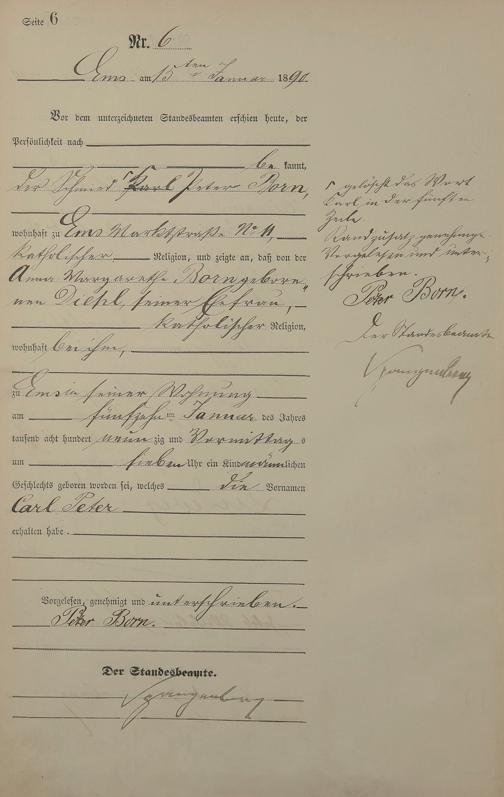 Seite 6
Nr. 6
Ems am 15ten Januar 1890.
Vor dem unterzeichneten Standesbeamten erschien heute, der
Persönlichkeit nach
be kannt,
der Schmied Karl Peter Born,
wohnhaft zu Ems Marktstraße No 11,
katholischer Religion, und zeigte an, daß von der
Anna Margarethe Born gebore-
nen Diehl, seiner Ehefrau,
katholischer Religion,
wohnhaft bei ihm,
zu Ems in seiner Wohnung
am fünfzehnten Januar des Jahres
tausend acht hundert neun zig und Vormittags
um sieben Uhr ein Kind männlichen
Geschlechts geboren worden sei, welches die Vornamen
Carl Peter
erhalten habe.
Vorgelesen, genehmigt und unterschrieben.
Peter Born.
Der Standesbeamte.
Spangenberg
gelöscht das Wort
Karl in der fünften
Zeile.
Randzusatz genehmigt
Vorgelesen und unter-
schrieben.
Peter Born.
Der Standesbeamte
Spangenberg